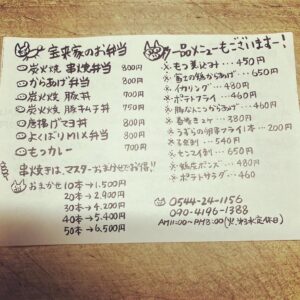 宝来家のお弁当
炭火焼 串焼弁当 800円
からあげ弁当 800円
炭火焼 豚丼 700円
炭火焼 豚キムチ丼 750円
唐揚げマヨ丼 800円
よくばりMIX弁当 800円
もつカレー 700円
串焼きは、マスターおまかせでお得!!
おまかせ 10本→1,500円
20本→2,900円
30本→4,200円
40本→5,400円
50本→6,500円
一品メニューもございますー!
※もつ煮込み…450円
※富士の鶏からあげ…650円
※イカリング…480円
※ポテトフライ…460円
※鶏なんこつからあげ…460円
※春巻き2ヶ…380円
※うずらの卵串フライ1本…200円
刺し…540円
※センマイ刺し…650円
※鶏皮ポンズ…480円
※ポテトサラダ…460円
0544-24-1156
090-4196-1388
AM11:00~PM8:00(火、第3水定休日)